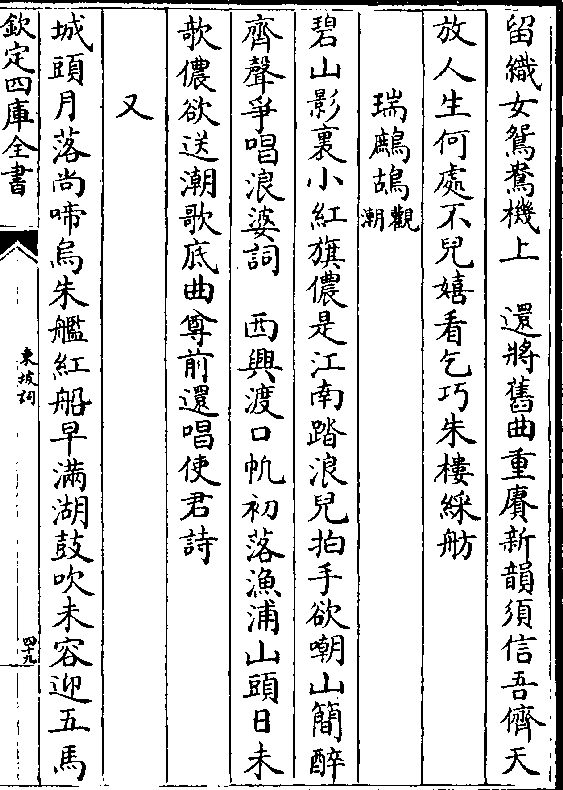 留織女鴛鴦機上　還將舊曲重賡新韻須信吾儕天
放人生何處不兒嬉看乞巧朱樓綵舫
瑞鷓鴣觀潮
碧山影裏小紅旗儂是江南踏浪兒拍手欲嘲山簡醉
齊聲爭唱浪婆詞　西興渡口帆初落漁浦山頭日未
歌儂欲送潮歌底曲尊前還唱使君詩
又
城頭月落尚啼烏朱艦紅船早滿湖鼓吹未容迎五馬
欽定四庫全書
東坡詞
四十九